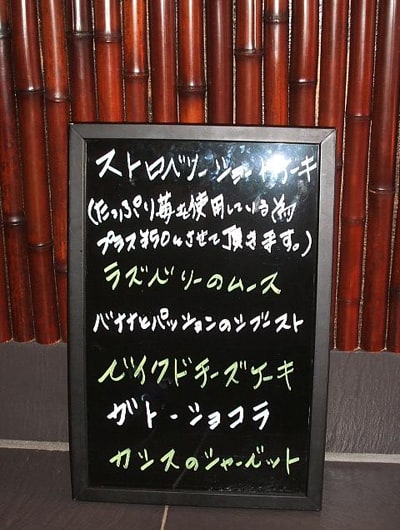 ストロベリーショートケーキ
(たっぷり苺を使用している為
プラス¥50とさせて頂きます。)
ラズベリーのムース
バナナとパッションのシブースト
ベイクドチーズケーキ
ガトーショコラ
カシスのシャーベット